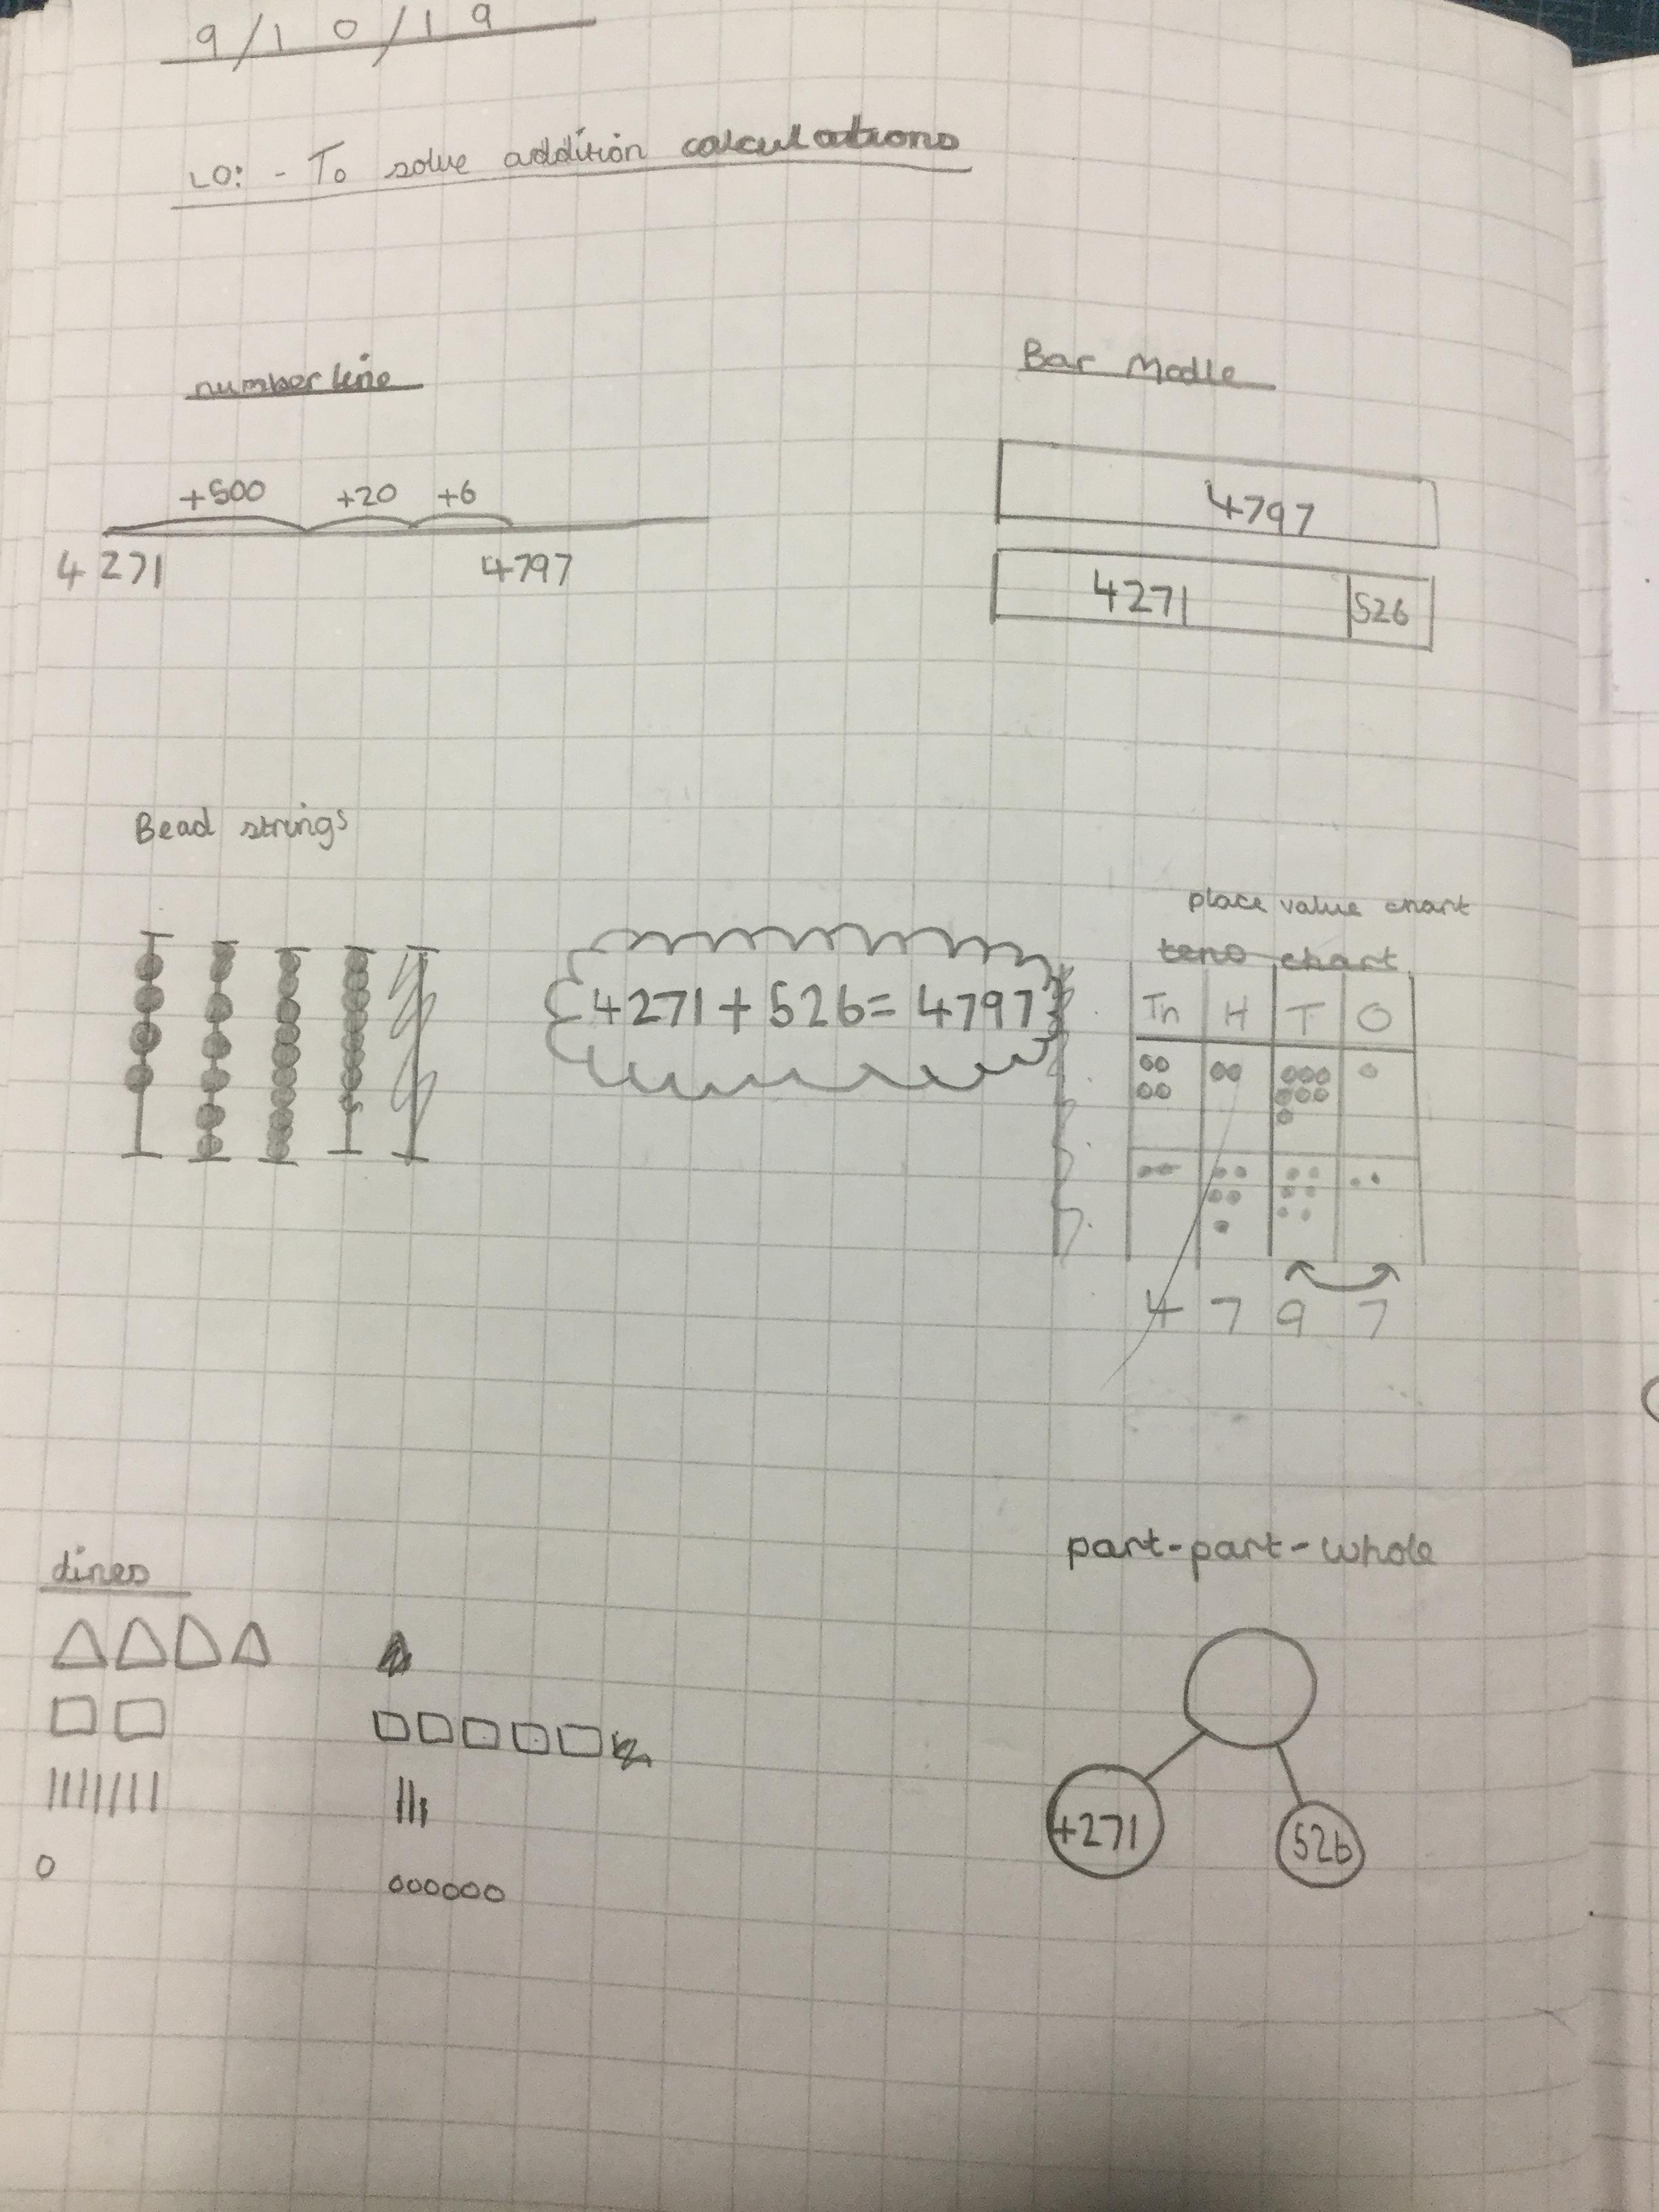 9/10/19
LO: - To solve addition calculations
number line
+500 +20 +6
4271 4797
Bar Modle
4797
4271 526
Bead strings
4271 + 526 = 4797
place value chart
tens chart
Th H T O
4 7 9 7
dines
part-part-whole
4271 526